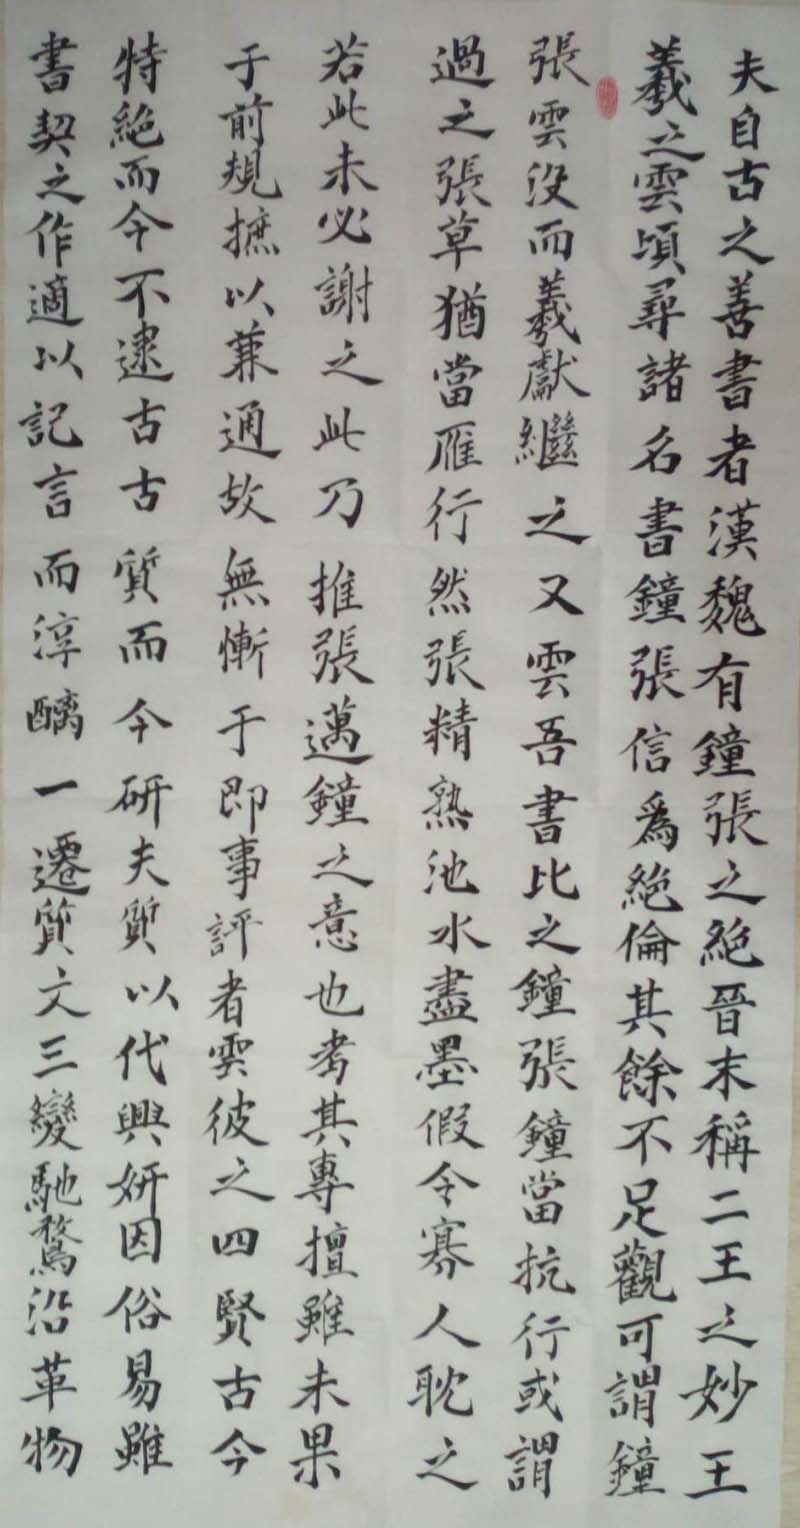 夫自古之善書者漢魏有鐘張之絕晉末稱二王之妙王
羲之雲頃尋諸名書鐘張信為絕倫其餘不足觀可謂鐘
張雲沒而羲獻繼之又雲吾書比之鐘張鐘當抗行或謂
過之張草猶當雁行然張精熟池水盡墨假令寡人耽之
若此未必謝之此乃推張邁鐘之意也考其專擅雖未果
于前規摭以兼通故無慚于即事評者雲彼之四賢古今
特絕而今不逮古古質而今研夫質以代興妍因俗易雖
書契之作適以記言而淳醨一遷質文三變馳騖沿革物